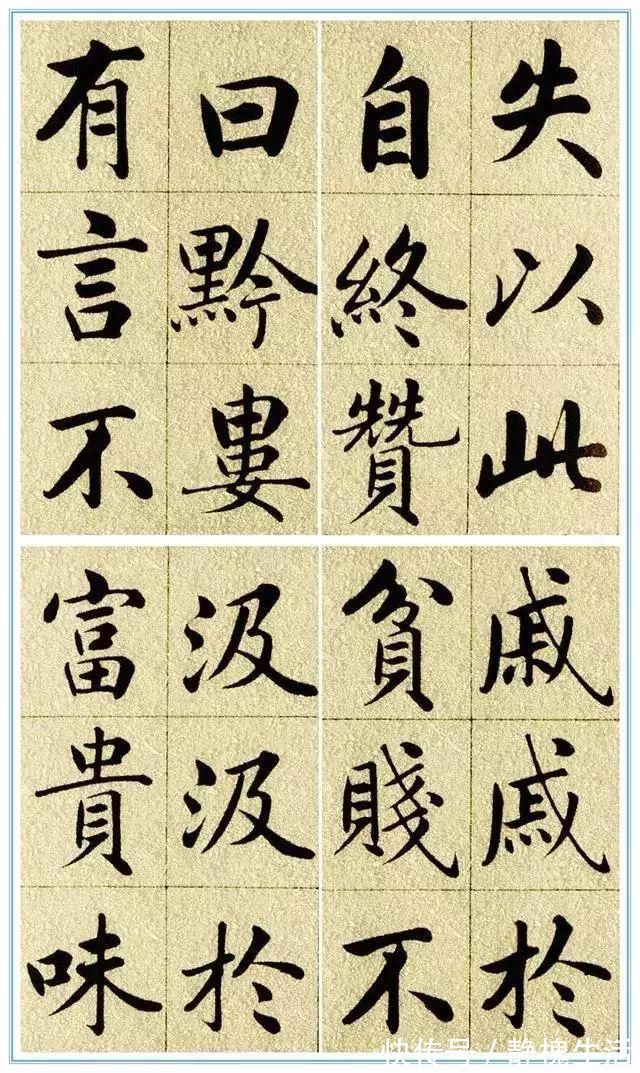 失以此
自終贊
曰黔婁
有言不
戚戚於
貧賤不
汲汲於
富貴味
快传号/静槐生活